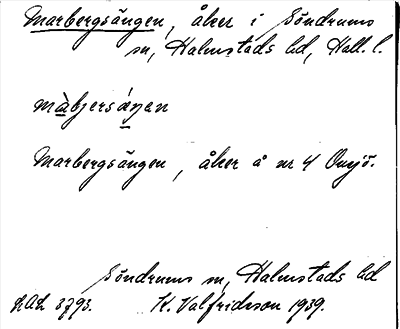 Marbergsängen, åker i Söndrums
sn, Halmstads hd, Hall. l.
màbjersáŋen
Marbergsängen, åker å nr 4
Söndrums sn, Halmstads hd
3793. K. Valfridsson 1939.